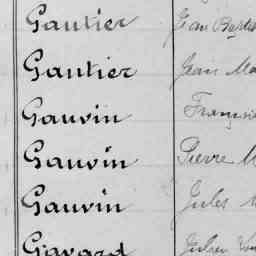 Gautier Jean Baptis
Gautier Jean Ma
Gauvin François
Gauvin Pierre M
Gauvin Jules
Gavard Julien